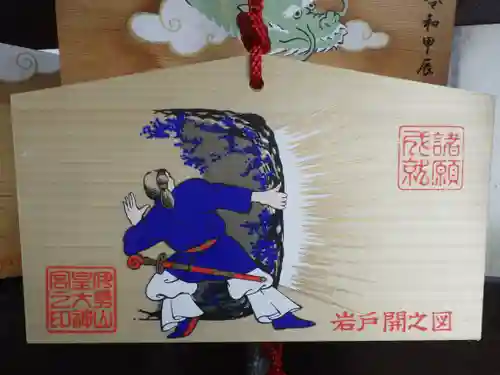 令和甲辰
諸願
成就
伊勢山
皇大神
宮之印
岩戸開之図